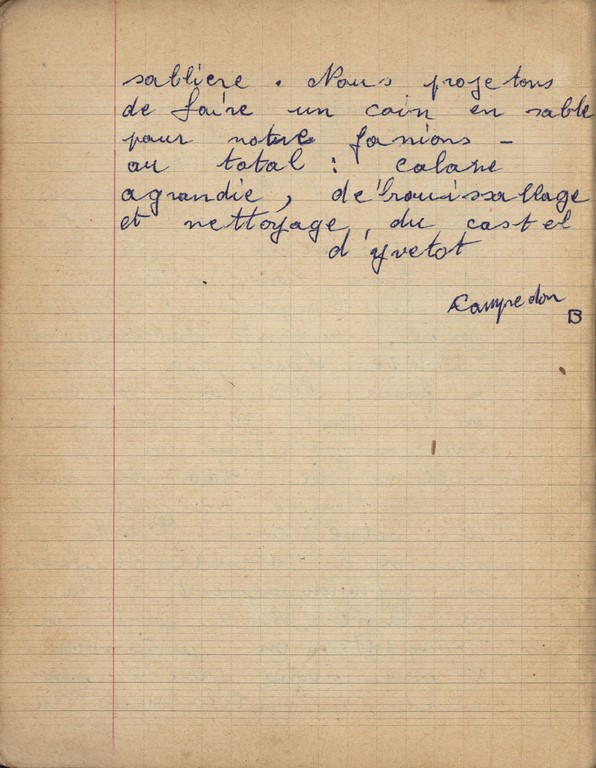 sablière . Nous projetons
de faire un coin en sable
pour notre fanions -
au total : calane
agrandie, débrouissaillage
et nettoyage, du castel
d'yvetot
Campredon
B